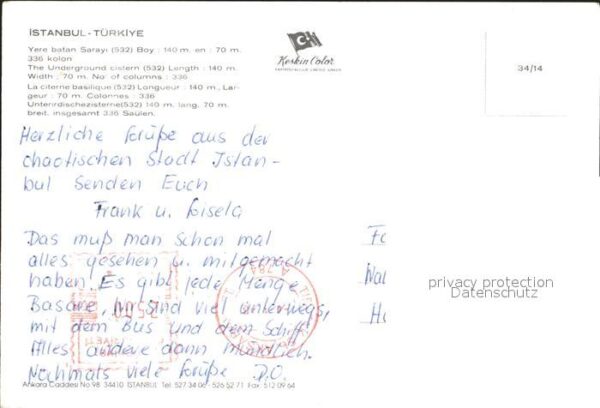 İSTANBUL - TÜRKİYE
Yere batan Sarayı (532) Boy : 140 m. en : 70 m.
336 kolon
The Underground cistern (532) Length : 140 m.
Width ; 70 m. No of columns : 336
La citerne basilique (532) Longueur : 140 m., Lar-
geur : 70 m. Colonnes : 336
Unterirdischezisterne(532) 140 m. lang, 70 m.
breit, insgesamt 336 Säulen.
Keskin Color
34/14
Herzliche Grüße aus der
chaotischen Stadt Istan-
bul senden Euch
Frank u. Gisela
Das muß man schon mal
alles gesehen u. mitgemacht
haben. Es gibt jede Menge
Basare, wir sind viel unterwegs,
mit dem Bus und dem Schiff.
Alles andere dann mündlich.
Nochmals viele Grüße D.O.
privacy protection
Datenschutz
Ankara Caddesi No 98 34410 İSTANBUL Tel: 527 34 06 - 526 52 71 Fax: 512 09 64